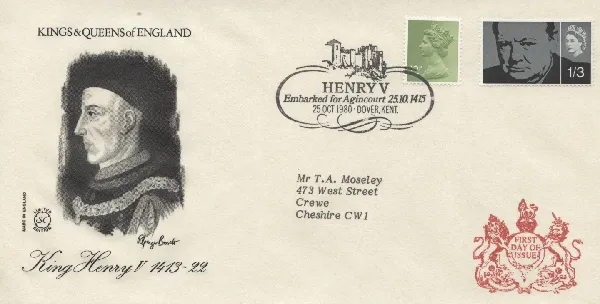 KINGS & QUEENS of ENGLAND
HENRY V
Embarked for Agincourt 25.10.1415
25 OCT 1980 · DOVER, KENT.
1/3
Mr T.A. Moseley
473 West Street
Crewe
Cheshire CW1
MADE IN ENGLAND
LIMITED
SC
EDITION
King Henry V 1413-22
FIRST
DAY OF
ISSUE